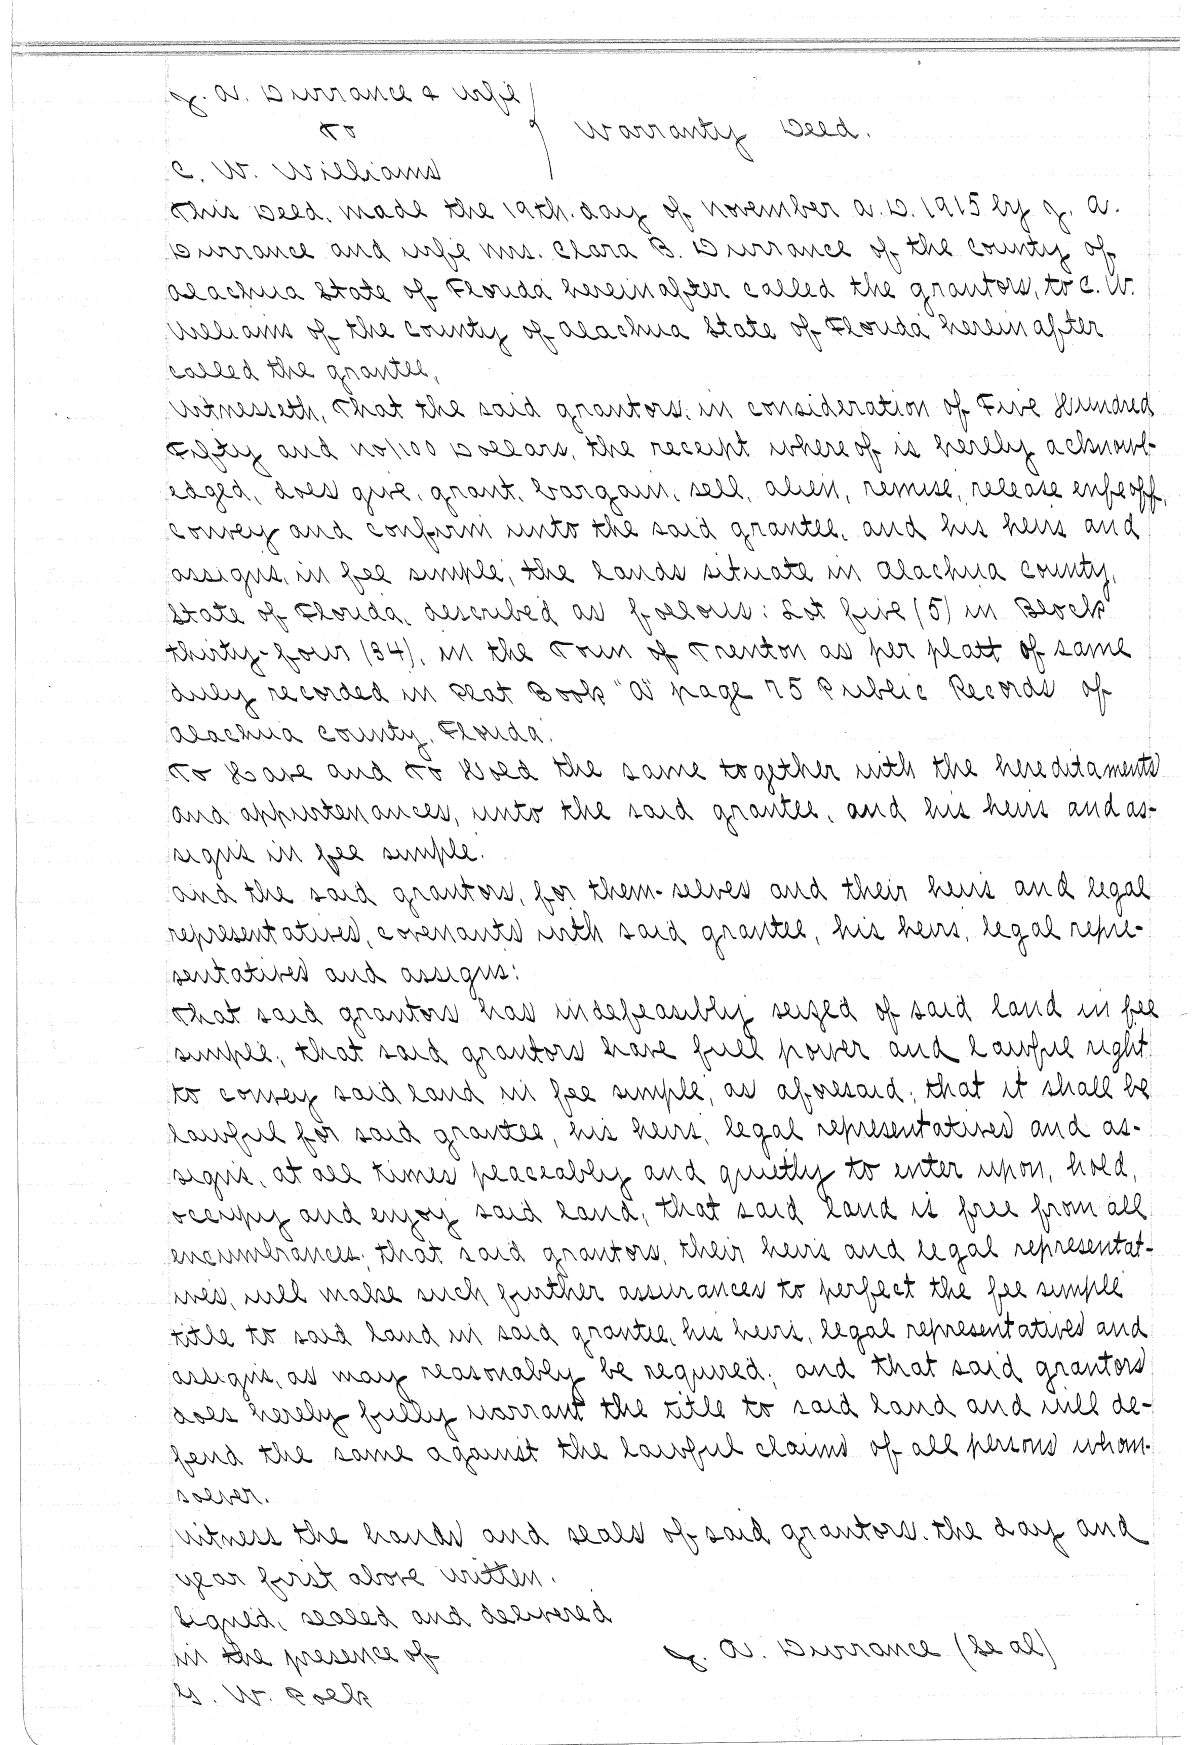 J. A. Durrance & wife
To
Warranty Deed.
C. W. Williams
This Deed, made the 19th. day of November A.D. 1915 by J. A.
Durrance and wife Mrs. Clara B. Durrance of the County of
Alachua State of Florida hereinafter called the grantors, to C. W.
Williams of the County of Alachua State of Florida hereinafter
called the grantee,
Witnesseth, That the said grantors, in consideration of Five Hundred
Fifty and no/100 Dollars, the receipt whereof is hereby acknowl-
edged, does give, grant, bargain, sell, alien, remise, release enfeoff,
convey and confirm unto the said grantee, and his heirs and
assigns, in fee simple, the lands situate in Alachua County,
State of Florida, described as follows: Lot five (5) in Block
thirty-four (34), in the Town of Trenton as per platt of same
duly recorded in Plat Book "A" page 75 Public Records of
Alachua County, Florida.
To Have and To Hold the same together with the hereditaments
and appurtenances, unto the said grantee, and his heirs and as-
signs in fee simple.
And the said grantors, for them-selves and their heirs and legal
representatives, covenants with said grantee, his heirs, legal repre-
sentatives and assigns:
That said grantors has indefeasibly seized of said land in fee
simple; that said grantors have full power and lawful right
to convey said land in fee simple, as aforesaid; that it shall be
lawful for said grantee, his heirs, legal representatives and as-
signs, at all times peaceably and quietly to enter upon, hold,
occupy and enjoy said land; that said land is free from all
encumbrances; that said grantors, their heirs and legal representat-
ives, will make such further assurances to perfect the fee simple
title to said land in said grantee, his heirs, legal representatives and
assigns, as may reasonably be required; and that said grantors
does hereby fully warrant the title to said land and will de-
fend the same against the lawful claims of all persons whom-
soever.
Witness the hands and seals of said grantors, the day and
year first above written.
Signed, sealed and delivered
in the presence of
J. A. Durrance (Seal)
G. W. Polk